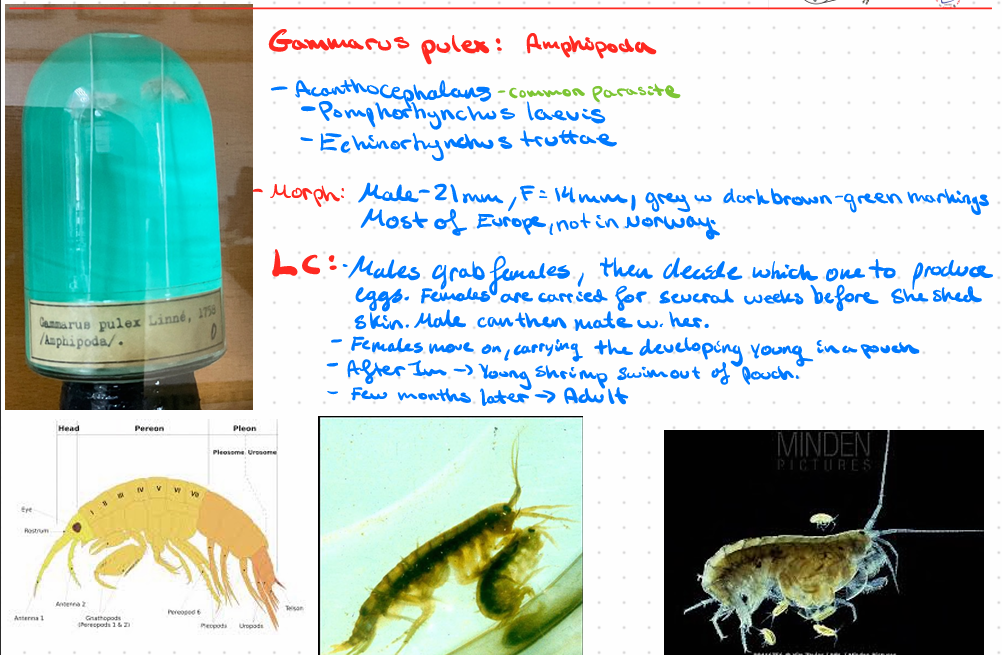 Gammarus pulex: Amphipoda
- Acanthocephalans - common parasite
- Pomphorhynchus laevis
- Echinorhynchus truttae
- Morph: Male - 21mm, F = 14mm, grey w dark brown-green markings
Most of Europe, not in Norway.
LC: · Males grab females, then decide which one to produce
eggs. Females are carried for several weeks before she shed
skin. Male can then mate w. her.
- Females move on, carrying the developing young in a pouch
- After 1m -> Young shrimp swim out of pouch.
- Few months later -> Adult
Gammarus pulex Linné, 1758
/Amphipoda/. 0
Head Pereon Pleon
Pleosome Urosome
I II III IV V VI VII
Eye
Rostrum
Antenna 1
Antenna 2
Gnathopods
(Pereopods 1 & 2)
Pereopod 6
Pleopods
Uropods
Telson
MINDEN
PICTURES